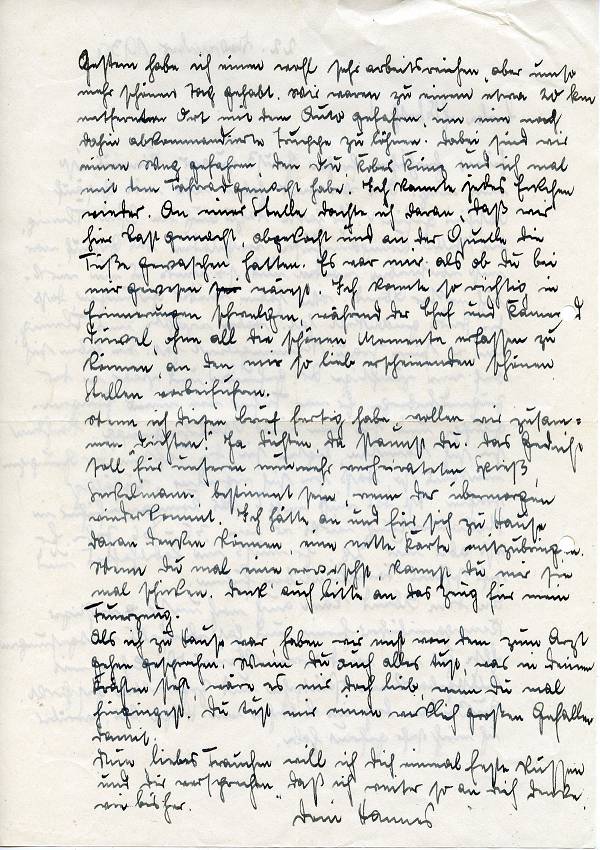 Gestern habe ich einen wohl sehr arbeitsreichen, aber umso
mehr schönen Tag gehabt. Wir waren zu einem etwa 20 km
entfernten Ort mit dem Auto gefahren, um eine nach
dahin abkommandierte Truppe zu löhnen. Dabei sind wir
einen Weg gefahren, den Du, liebes und ich mal
mit dem Fahrrad gemacht habe. Ich kannte jedes
wieder. An einer Stelle dachte ich daran, daß wir
hier Rast gemacht, abgekocht und an der Quelle die
Füße gewaschen hatten. Es war mir, als ob Du bei
mir gewesen wärest. Ich konnte so richtig in
Erinnerungen schwelgen, während der Chef und Kamerad
ohne all die schönen Momente erfassen zu
können, an den mir so lieb erscheinenden schönen
Stellen vorbeifuhren.
Wenn ich diesen Brief fertig habe wollen wir zusam=
men "dichten". Ja dichten, da staunst Du. Das Gedicht
soll für unseren nunmehr verheirateten Spieß,
bestimmt sein, wenn der übermorgen
wiederkommt. Ich hätte an und für sich zu Hause
daran denken können, eine nette Karte mitzubringen.
Wenn Du mal eine erwischst, kannst Du mir sie
mal schicken. Denk' auch bitte an das Zeug für mein
Feuerzeug.
Als ich zu Hause war, haben wir nicht von dem zum Arzt
gehen gesprochen. Wenn Du auch alles tust, was in Deinen
Kräften steht, wäre es mir doch lieb, wenn Du mal
hingingest. Du tust mir einen wirklich großen Gefallen
damit.
Nun liebes Frauchen will ich Dich einmal feste küssen
und Dir versprechen, daß ich weiter so an Dich denke,
wie bisher.
Dein Hannes